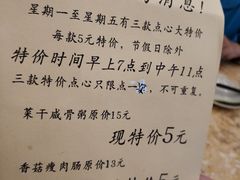 消息！
星期一至星期五有三款点心大特价
每款5元特价，节假日除外
特价时间早上7点到中午11点
三款特价点心只限点一，不可重复。
菜干咸骨粥原价15元
现特价5元
香菇瘦肉肠原价13元
5元